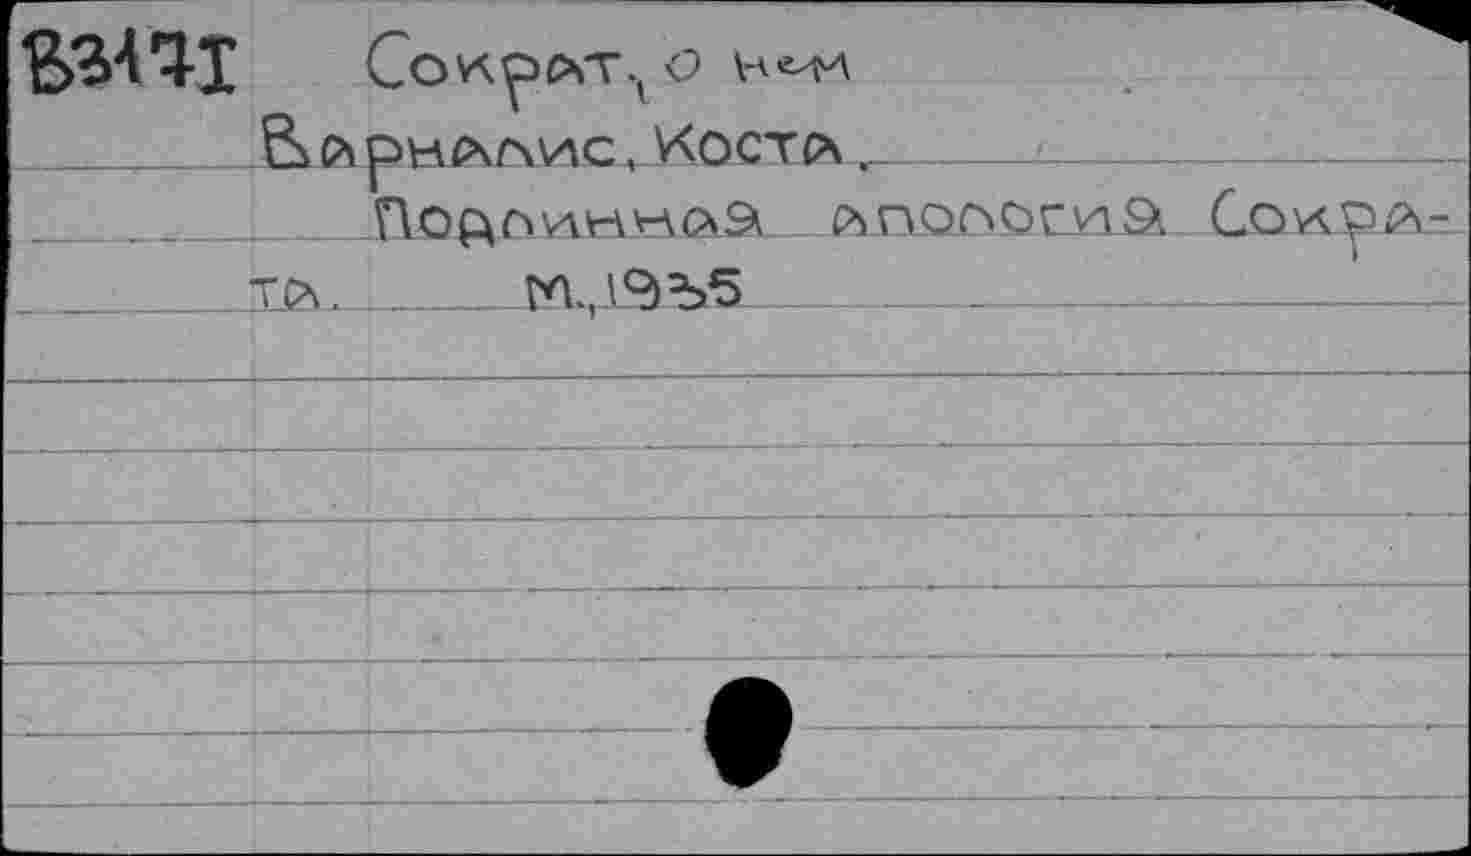 В3171 Сократ, о нем
Варналис, Коста.
Подлинная апология Сокра-
та. М., 1935